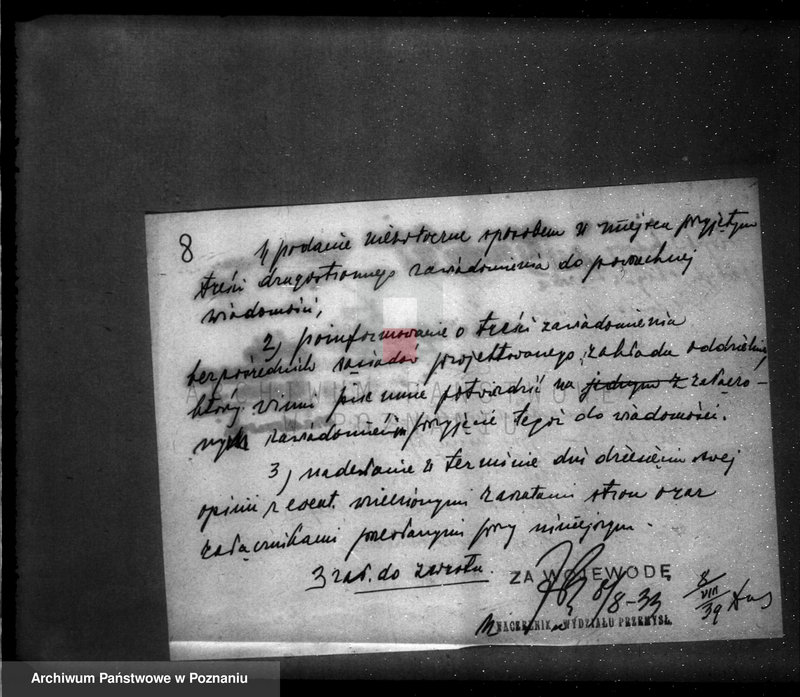 8
1/ podanie niezwłoczne sposobem w miejscu przyjętym
treści drugostronnego zawiadomienia do powszechnej
wiadomości,
2/ poinformowanie o treści zawiadomienia
bezpośrednich sąsiadów projektowanego zakładu oddzielnie,
którzy winni pisemnie potwierdzić na jednym z załączo-
nych zawiadomień przyjęcie tegoż do wiadomości.
3/ nadesłanie w terminie dni dziesięciu swej
opinii z ewent. wniesionymi zarzutami stron oraz
załącznikami przesłanymi przy niniejszym.
3 zał. do zwrotu.
ZA WOJEWODĘ
8/8-33
8/VIII 39
NACZELNIK WYDZIAŁU PRZEMYSŁ.
ARCHIWUM PAŃSTWOWE
W POZNANIU
Archiwum Państwowe w Poznaniu